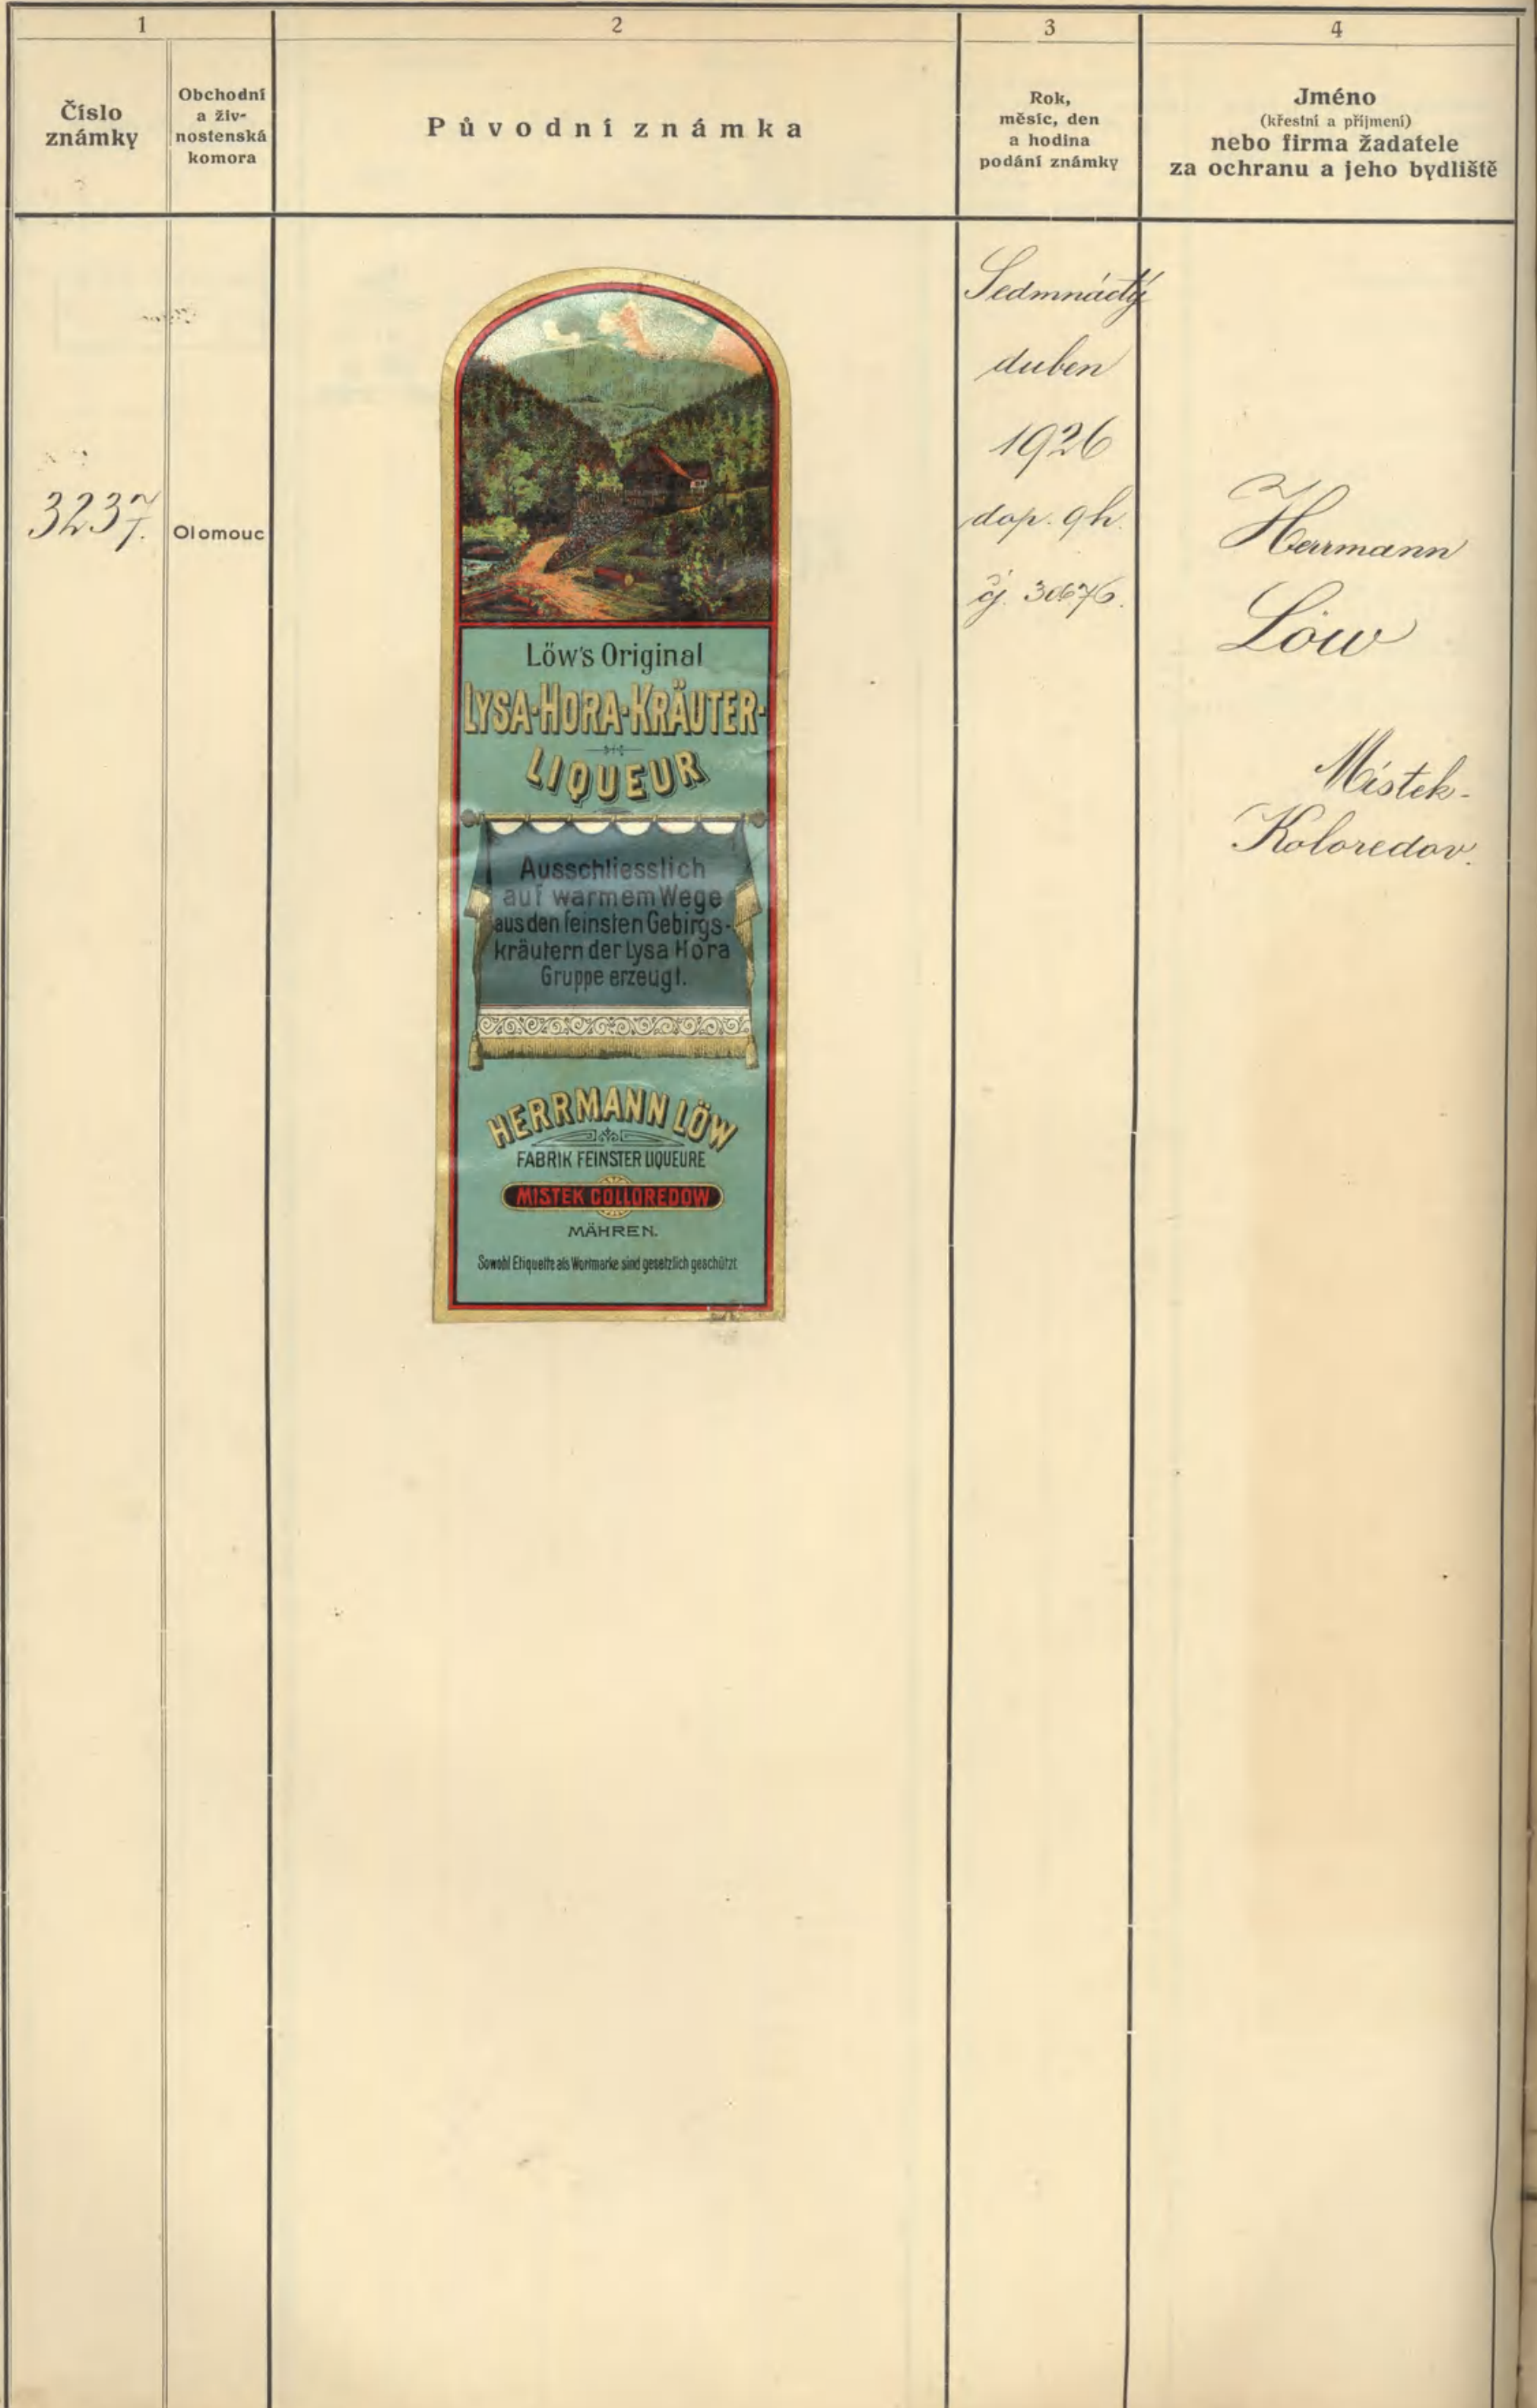 1
2
3
4
Číslo
známky
Obchodní
a živ-
nostenská
komora
Původní známka
Rok,
měsíc, den
a hodina
podání známky
Jméno
(křestní a příjmení)
nebo firma žadatele
za ochranu a jeho bydliště
3237.
Olomouc
Löw's Original
LYSA-HORA-KRÄUTER-
LIQUEUR
Ausschliesslich
auf warmem Wege
aus den feinsten Gebirgs-
kräutern der Lysa Hora
Gruppe erzeugt.
HERRMANN LÖW
FABRIK FEINSTER LIQUEURE
MISTEK COLLOREDOW
MÄHREN.
Sowohl Etiquette als Wortmarke sind gesetzlich geschützt
Sedmnáctý
duben
1926
dop. 9h.
čj.
Herrmann
Löw
Místek-
Koloredov.